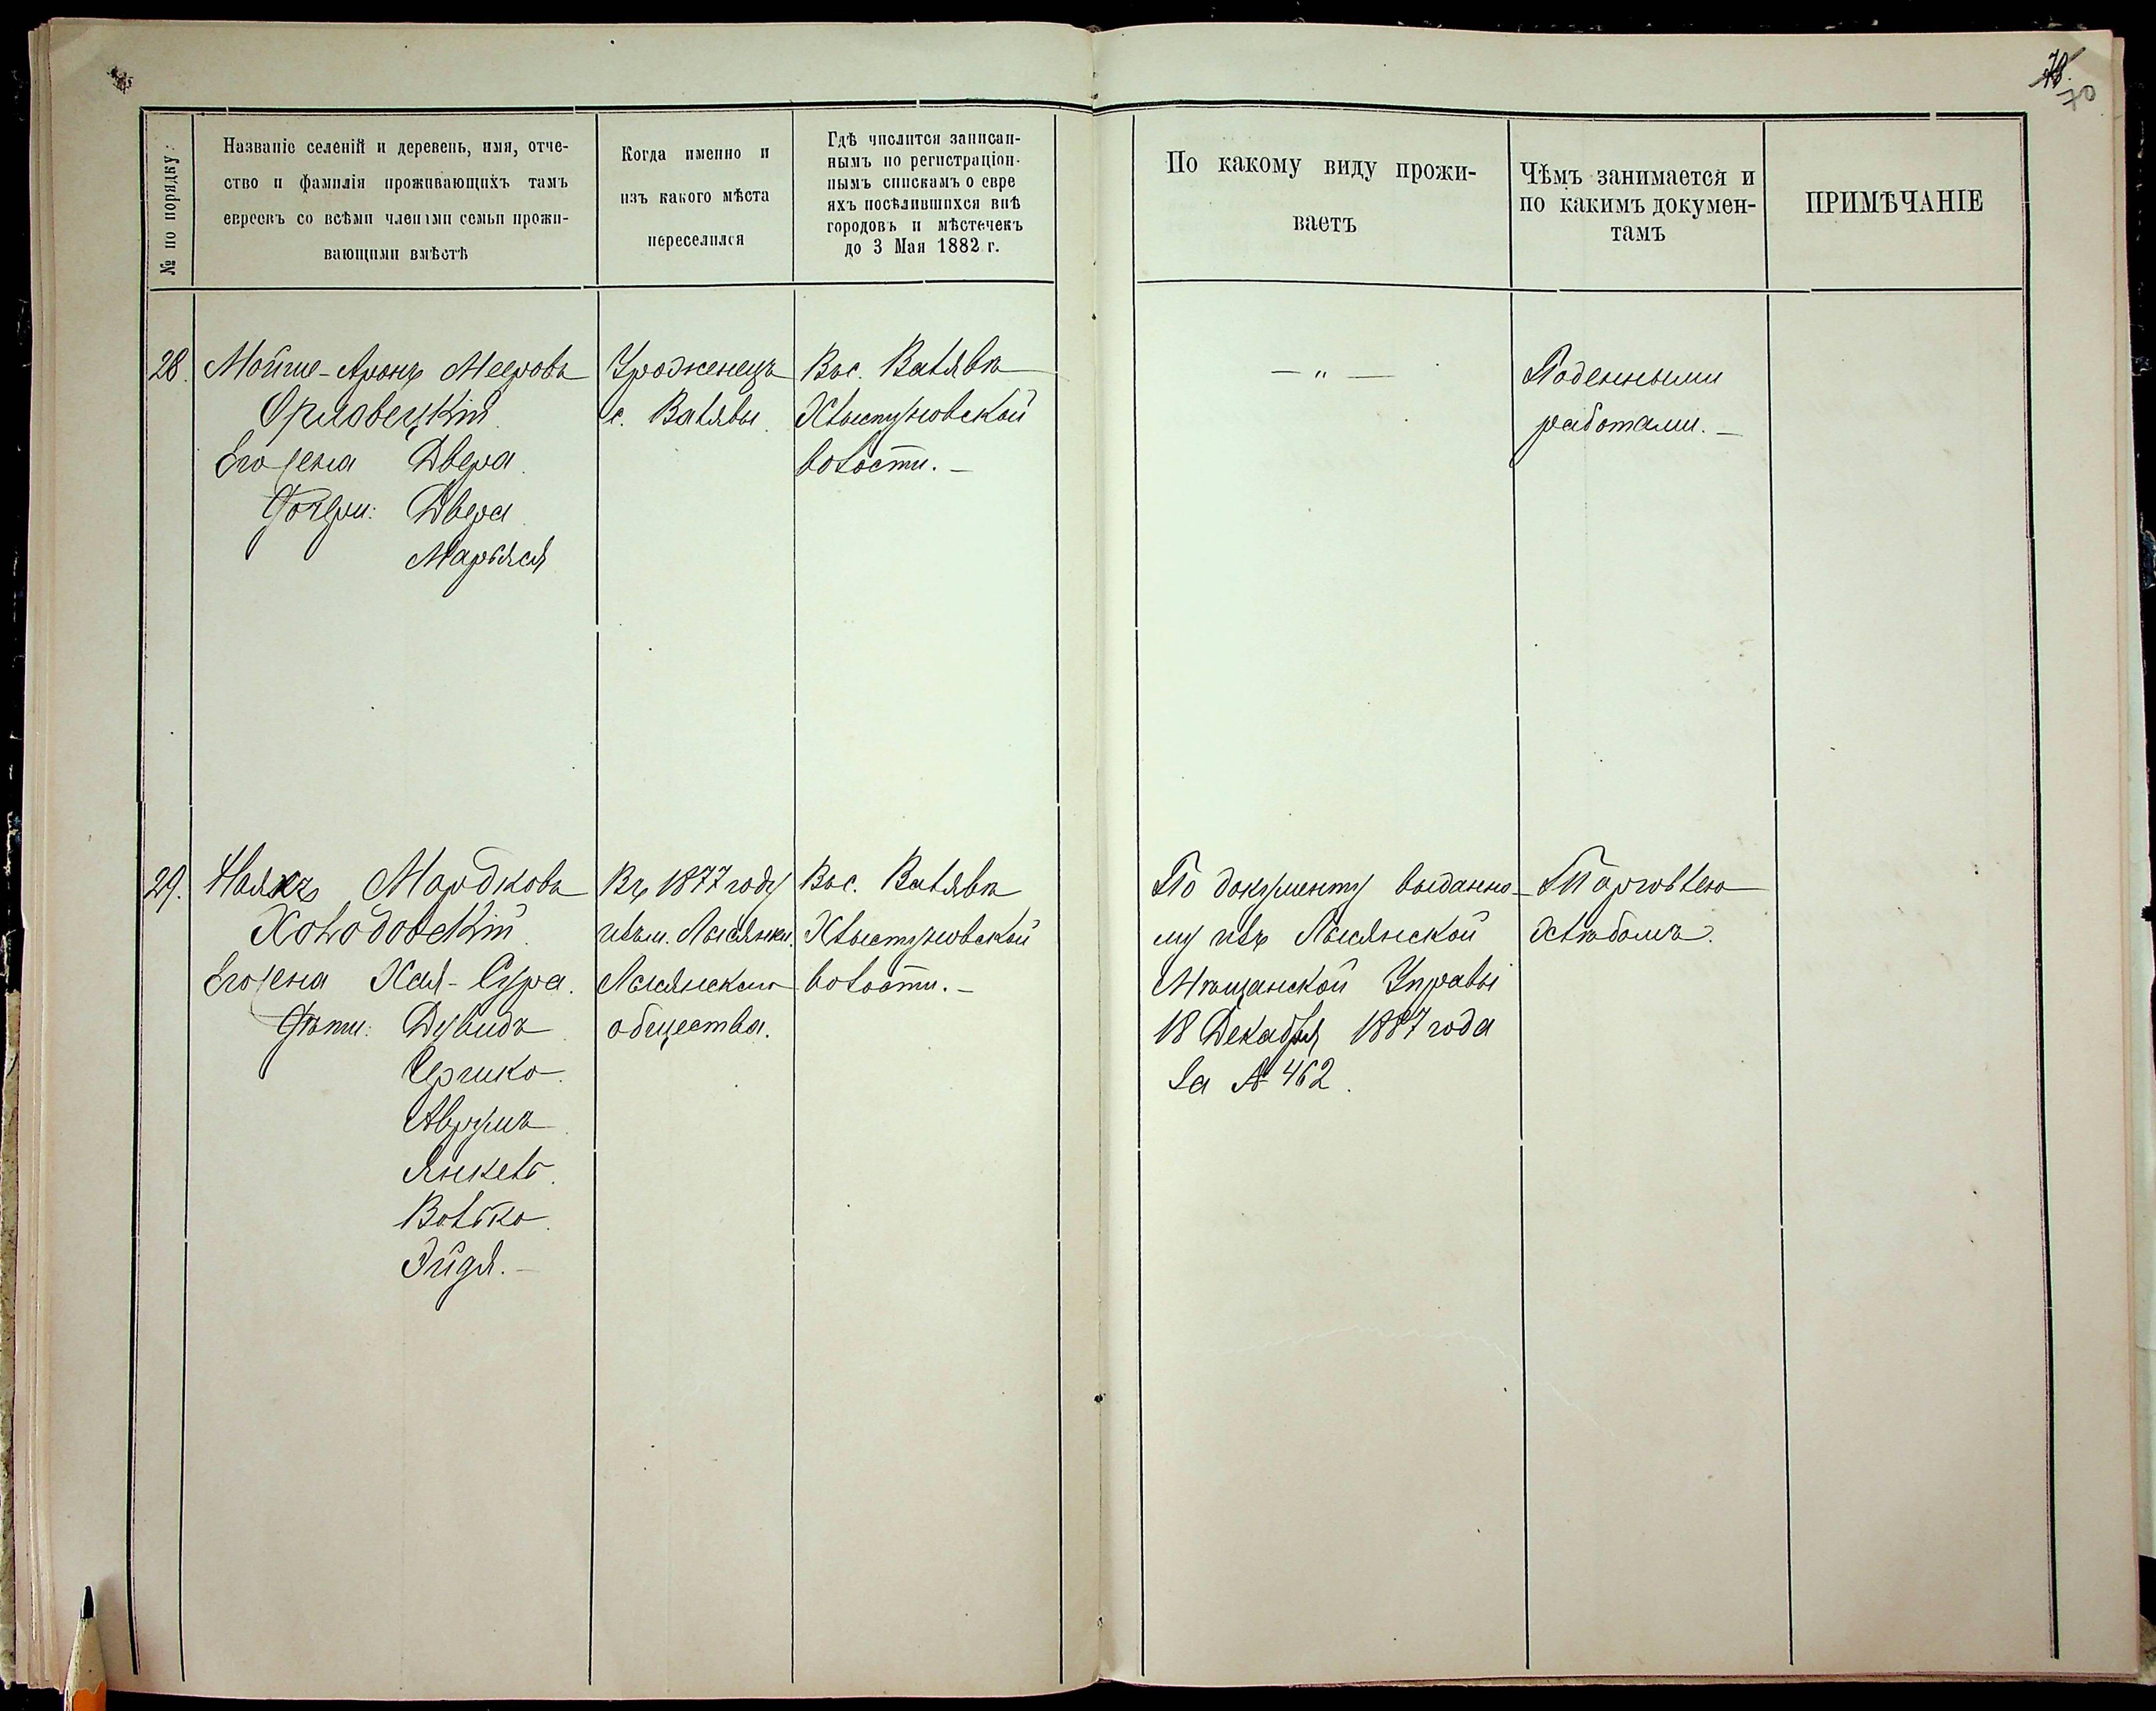 78.
70
№ по порядку:
Названіе селеній и деревень, имя, отче-
ство и фамилія проживающихъ тамъ
евреевъ со всѣми членами семьи прожи-
вающими вмѣстѣ
Когда именно и
изъ какого мѣста
переселился
Гдѣ числится записан-
нымъ по регистраціон-
нымъ спискамъ о евре
яхъ поселившихся внѣ
городовъ и мѣстечекъ
до 3 Мая 1882 г.
По какому виду прожи-
ваетъ
Чѣмъ занимается и
по какимъ докумен-
тамъ
ПРИМѢЧАНІЕ
28. Мойше-Аронъ Мееровъ
Орловецкій
Его жена Двера.
Дочери: Двера
Марьяся
Уроженецъ
с. Валявы.
Въ с. Валявѣ
Хлыстуновской
волости. —
— „ —
Поденными
работами. —
29. Мордковъ
Холодовскій
Его жена Хая-Сура.
Дѣти: Дувидъ
Сришко.
Аврумъ
Янкель.
Волько.
Эйдя. —
Въ 1877 году
изъ м. Лысянки.
Лысянскаго
общества.
Въ с. Валявѣ
Хлыстуновской
волости. —
По документу выданно-
му изъ Лысянской
Мѣщанской Управы
18 Декабря 1887 года
За № 462.
Торговлею
хлѣбомъ.